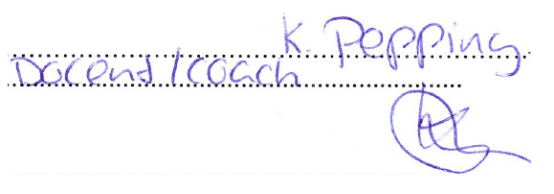 K. Pepping
Docent/coach